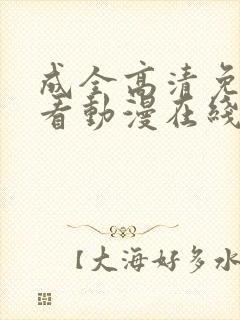 成全高清免
看動漫在綫
【大海好多水